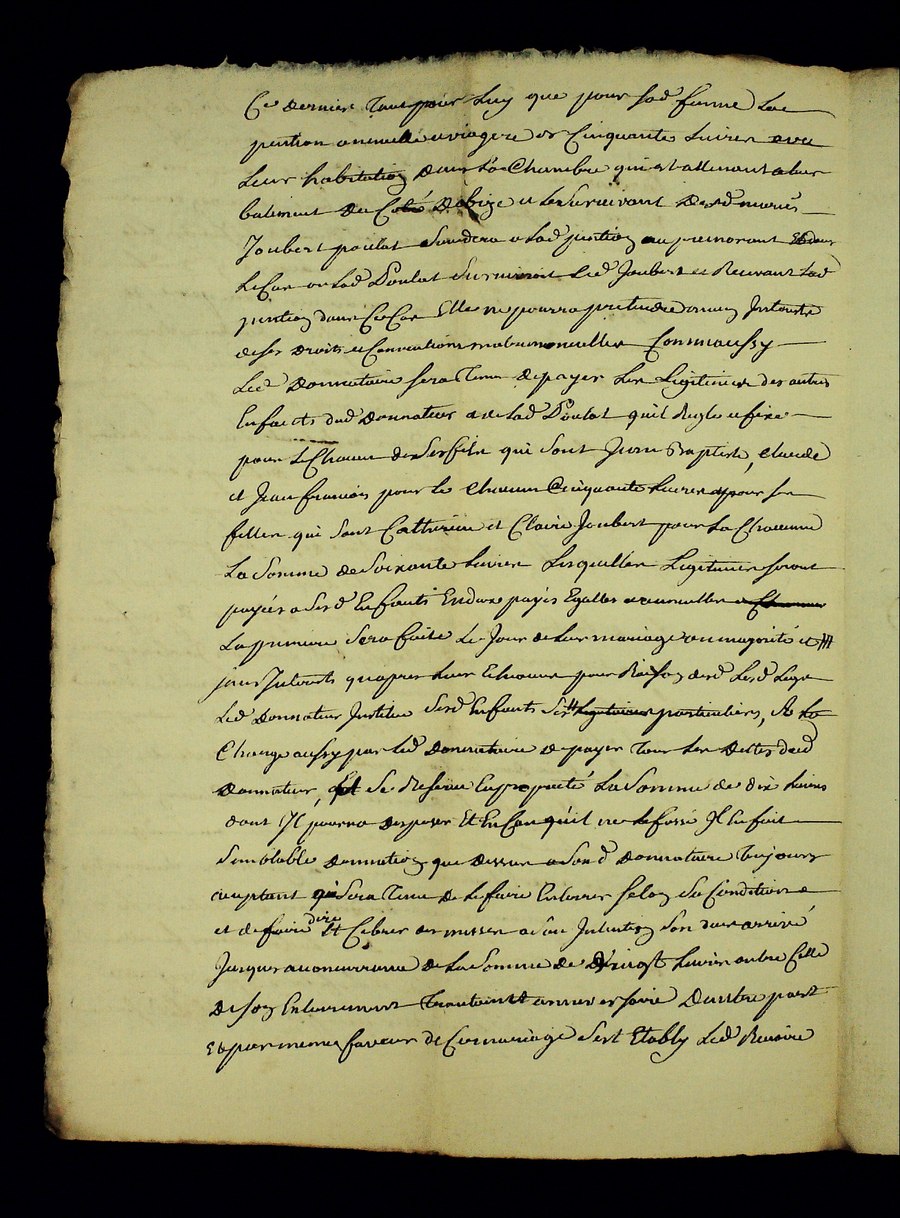 Ce dernier tant pour luy que pour sad femme la
pention annuelle viagere de Cinquante livres avec
leur habitation dans la Chambre qui est attenant a leur
batiment du Coté de bize et le survivant desd mariés
Joubert poulat Sucedera a lad pention au premourant Et dans
le Cas ou lad Poulat Survivroit led Joubert et Recevant lad
pention dans Ce Cas Elle ne pourra pretendre aucun Interests
de ses droits et Conventions matrimonielles Comme aussy
led donnataire sera Tenu de payer les legitimes des autres
Enfants dud donnateur de lad Poulat quil Regle et fixe
pour le Chacun de Ses fils qui sont Jean Baptiste, claude
et Jean francois pour le chacun Cinquante livres et pour ses
filles qui sont Catherine et Claire Joubert pour la Chacune
la Somme de Soixante livres lesquelles legitimes seront
payées a Sesd Enfants En deux payes Egalles annuelles
la premiere Sera faite le Jour de leur mariage ou majorité et
sans Interests quapres leur Echeance pour Raison desd
led donnateur Institue Sesd Enfants Ses particuliers, A la
Charge aussy par led donnataire de payer tous les dettes dud
donnateur, Se Reserve En proprieté la Somme de dix livres
dont Il pourra disposer Et En Cas qu'il ne le fasse Il En fait
Semblable donnation que dessus a Sond donnataire Toujours
acceptant qui Sera Tenu de le faire Enterrer selon Sa Condition
et de faire dire Et Celebrer des messes a son Intention Son deces arrivé
Jusques a concurrence de la Somme de vingt livres outre Celle
de son Enterrement anniversaire Dautre part
Et par meme faveur de Ce mariage Sest Etably led